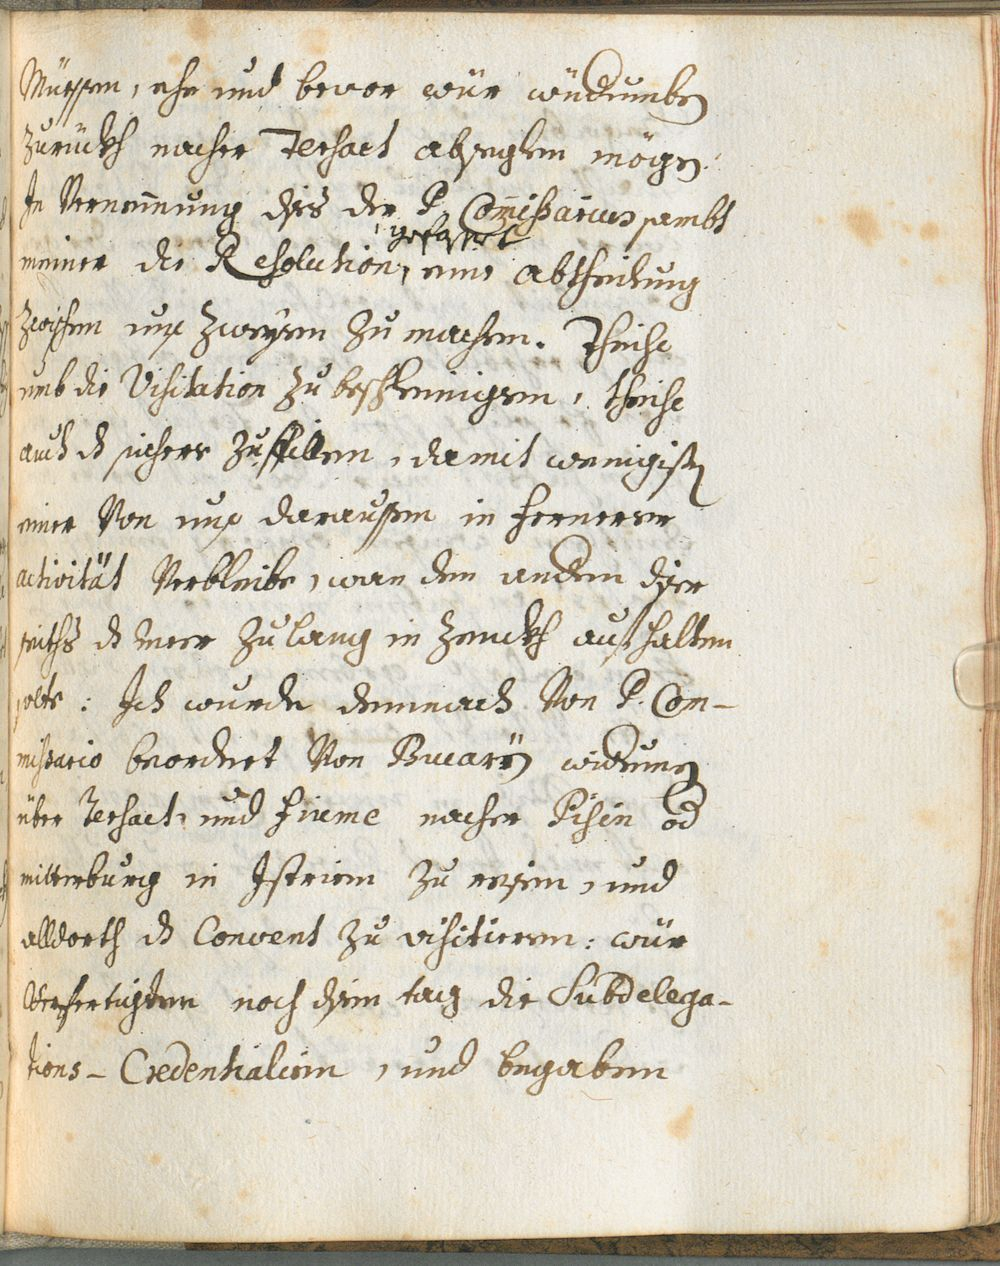 Müessen, ehe und bevor wür widerumben
zurückh nacher Tersact abseglen mögen.
In Vernemmung dises der P. Commißarius sambt
gefasset
meiner die Resolution, eine abtheilung
zwischen unß zweyen zu machen. Theils
umb die Visitation zu beschleunigen, theils
auch d sichere zu spillen, damit wenigist
einer Von unß daraussen in fernerer
activität Verbleibe, wan den andern diser
seiths d Meer zu lang in Zenckh aufhalten
solte: Ich wurde demnach Von P. Com-
mißario beordert Von Buccarj widerumb
über Tersact, und Fiume nacher Pisin od
mitterburg in Istrien zu reisen, und
alldorth d Convent zu visitieren: wür
Verfertigten noch disen tag die Subdelega-
tions-Credentialien, und begaben